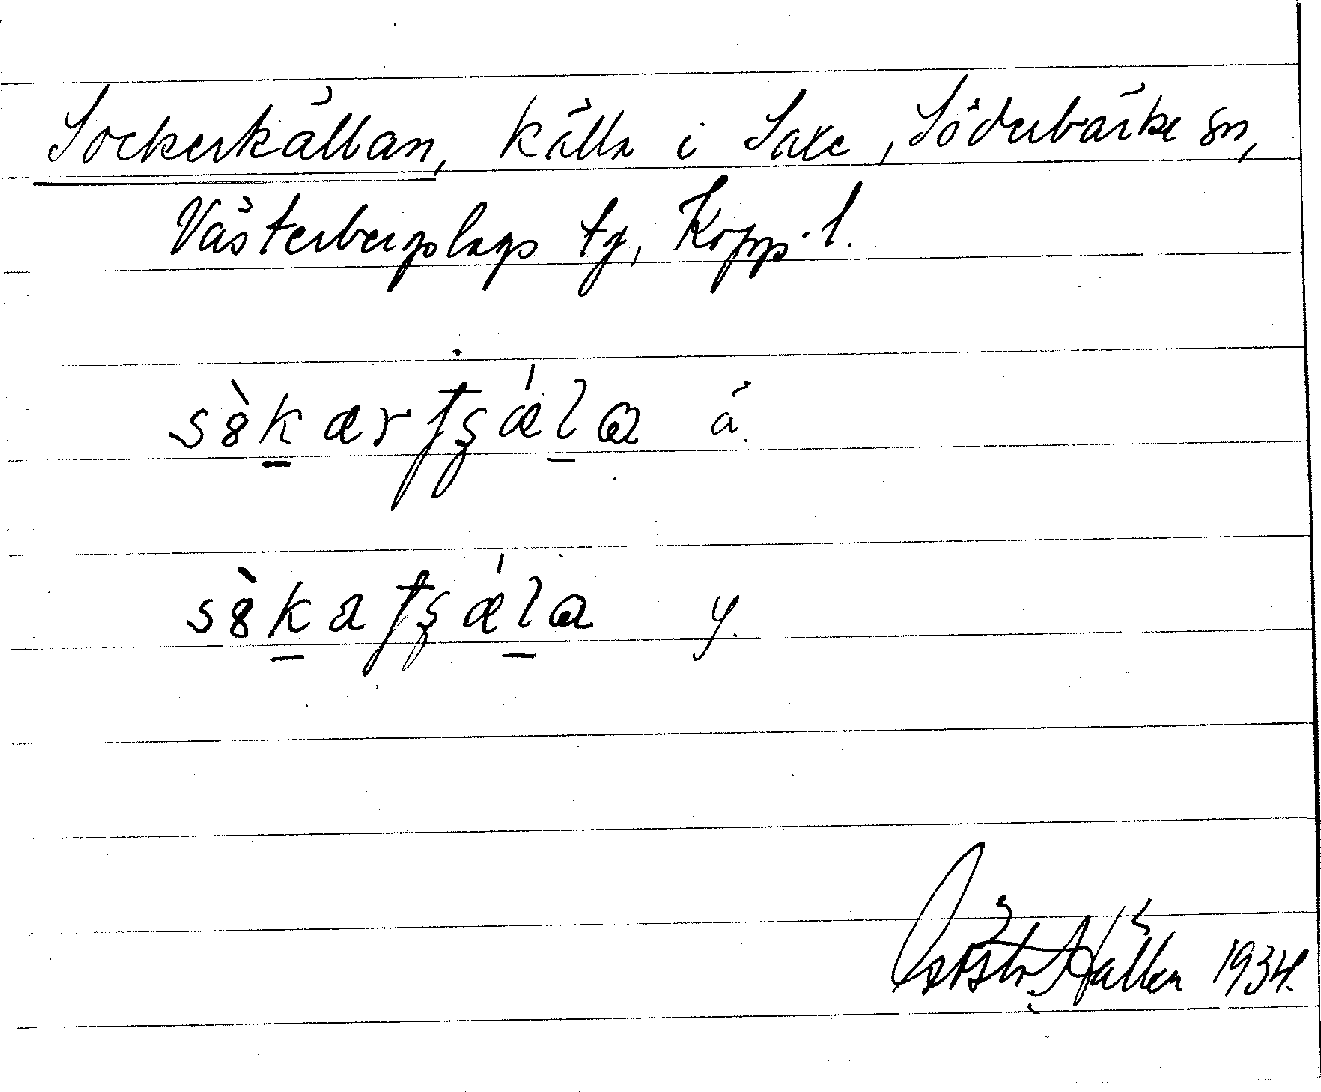 Sockerkällan, källa i Saxe, Söderbärke sn,
Västerbergslags tg, Kopp. l.
sò̤kærtʂǽla ä.
sò̤katʂǽla y.
Gösta Hallén 1934.